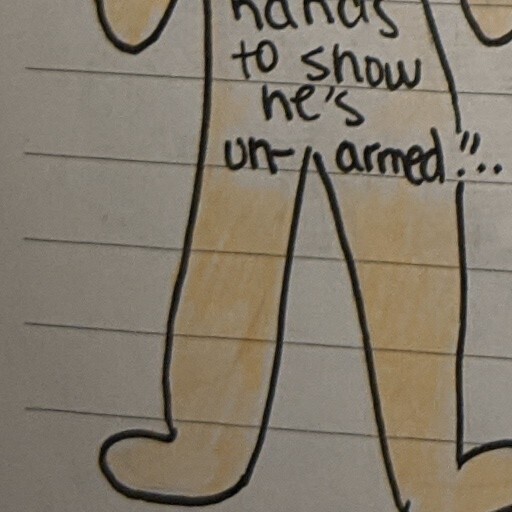 hands
to show
he's
un- armed"..